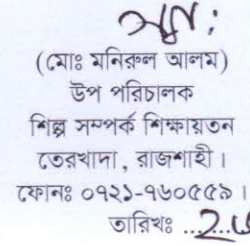 স্বাঃ
(মোঃ মনিরুল আলম)
উপ পরিচালক
শিল্প সম্পর্ক শিক্ষায়তন
তেরখাদা, রাজশাহী।
ফোনঃ ০৭২১-৭৬০৫৫৯।
তারিখঃ ...